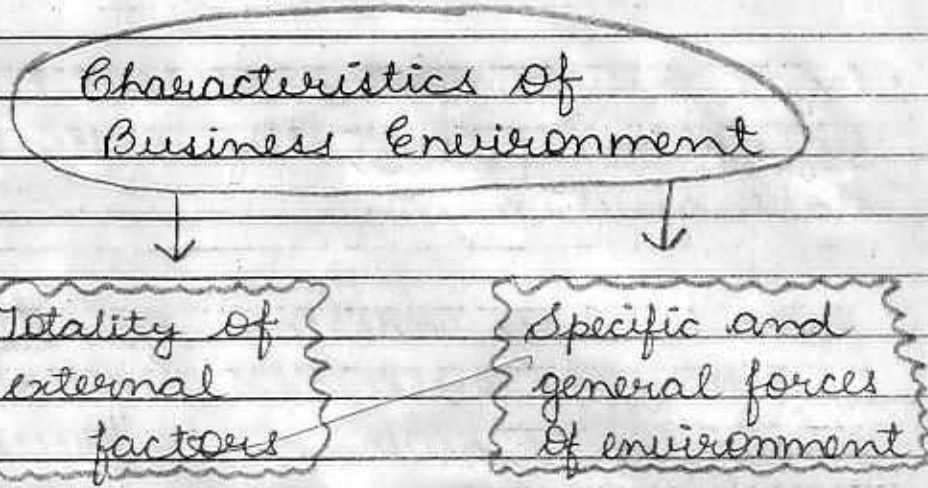 Characteristics of
Business Environment
Totality of
external
factors
Specific and
general forces
of environment